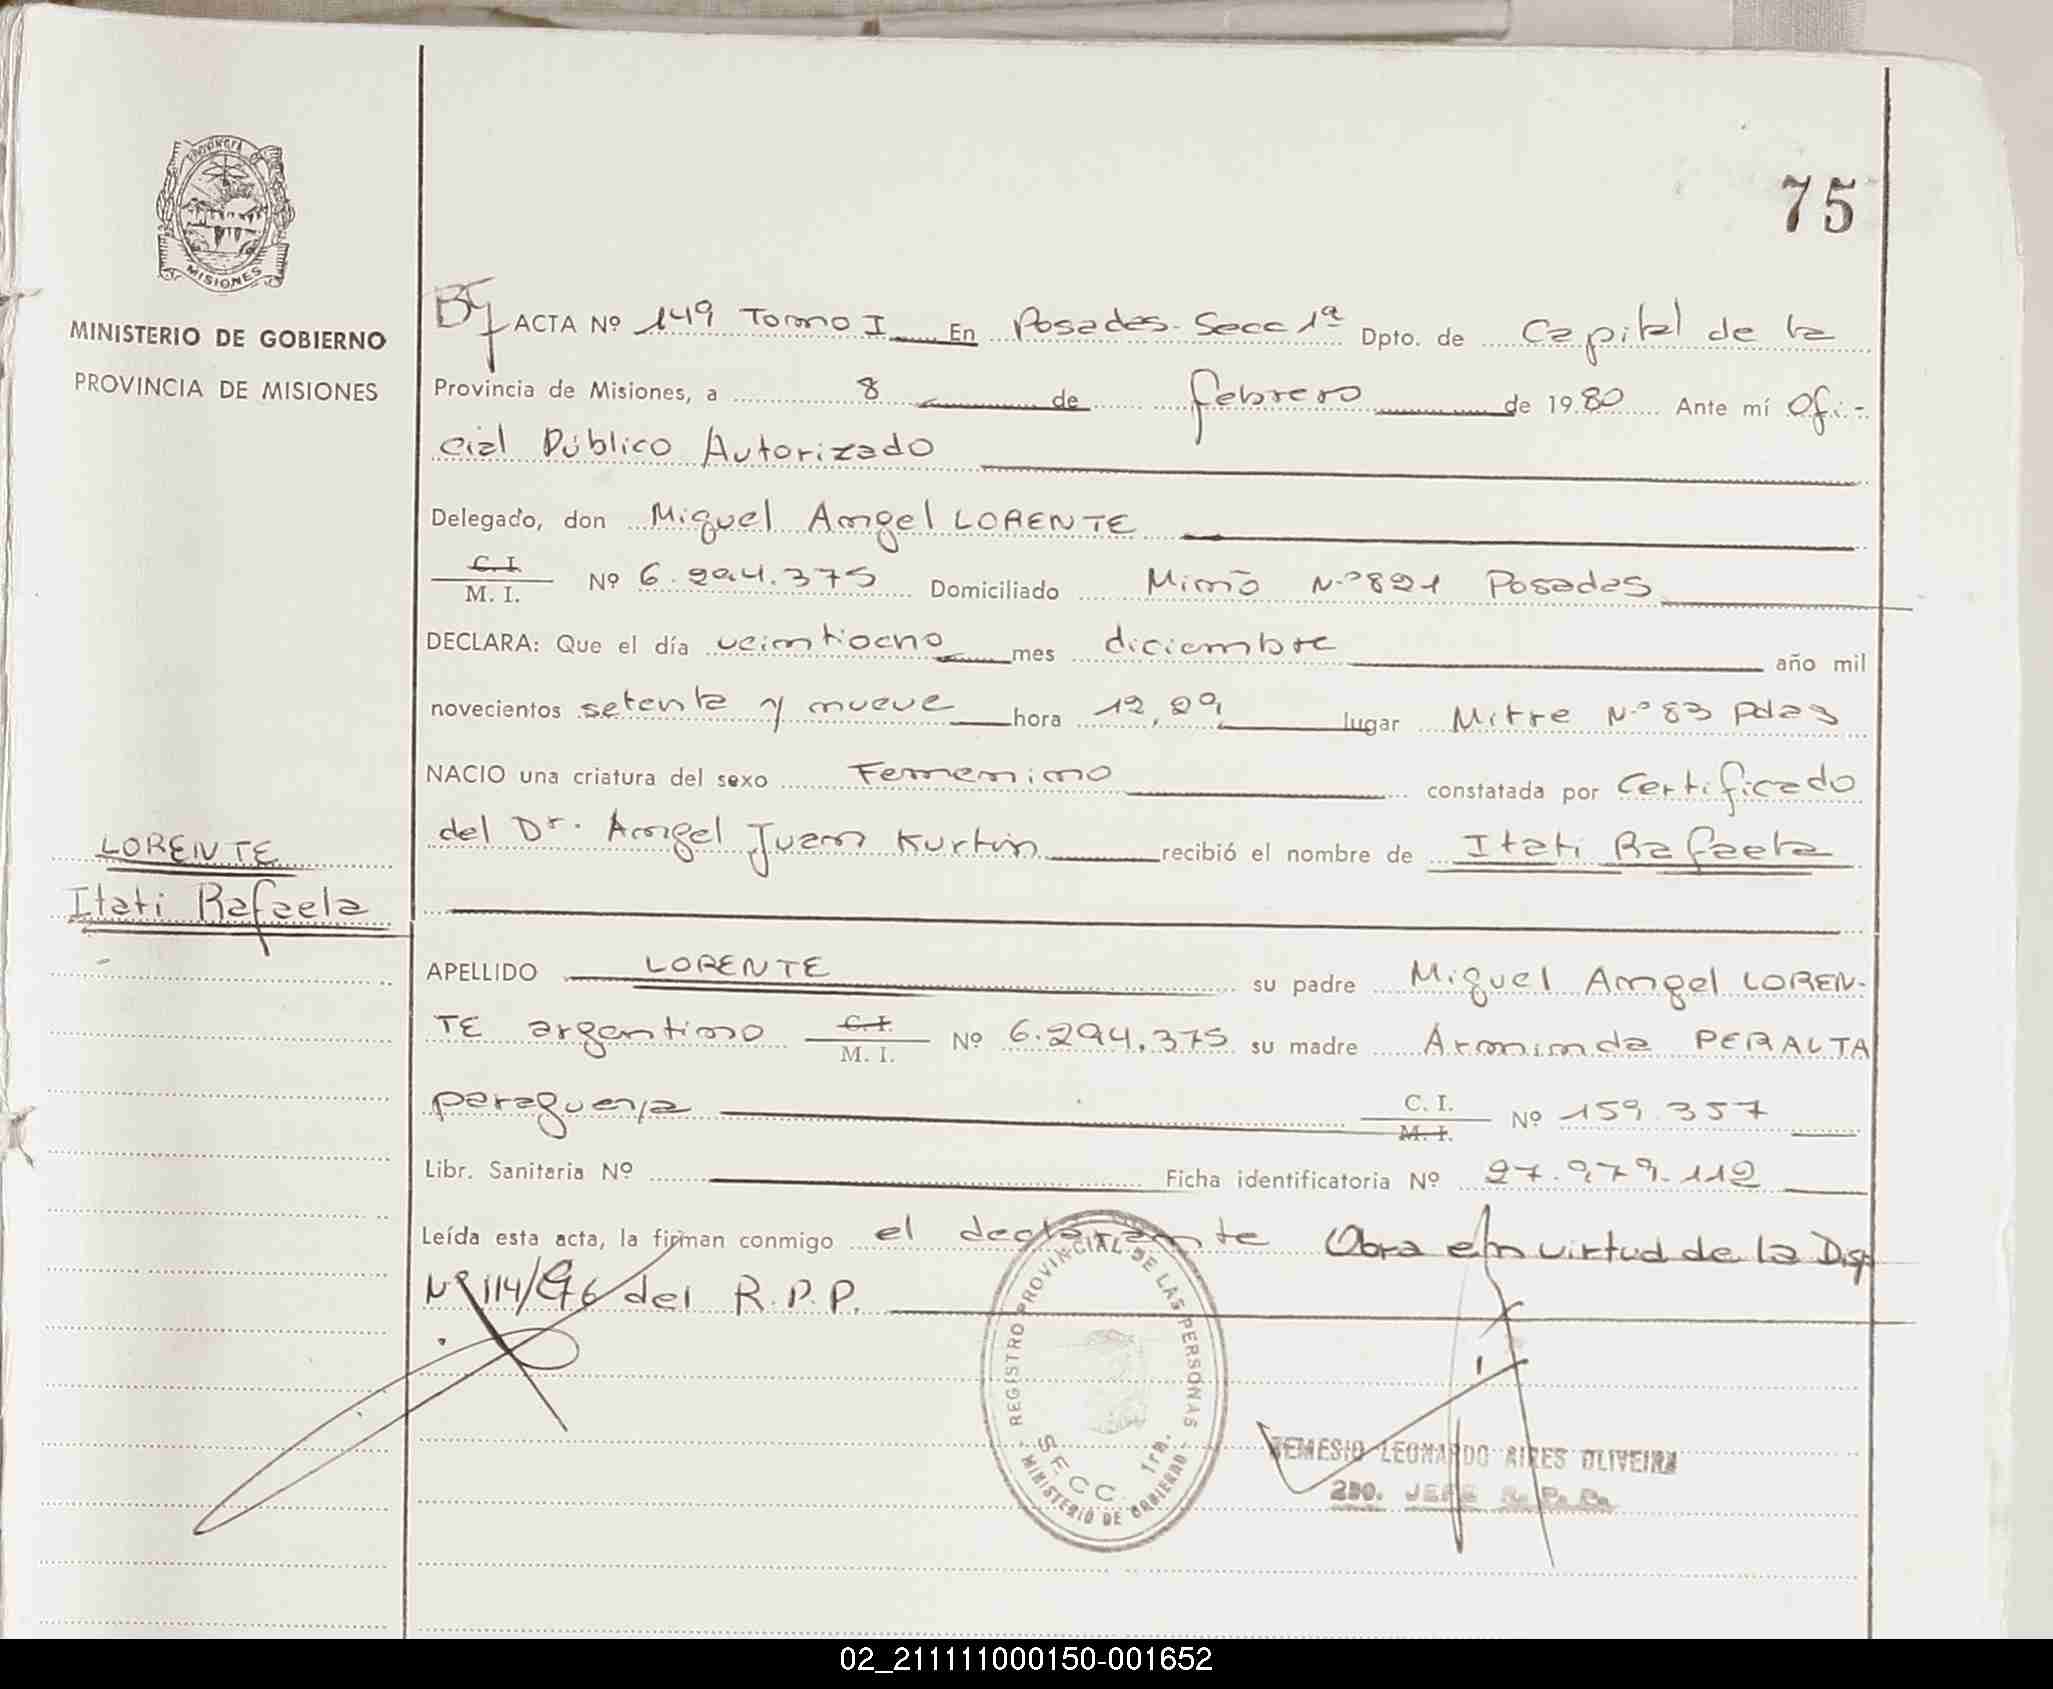 75
PROVINCIA DE
MISIONES
MINISTERIO DE GOBIERNO
PROVINCIA DE MISIONES
ACTA Nº 149 Tomo I En Posadas. Secc 1ª Dpto. de Capital de la
Provincia de Misiones, a 8 de febrero de 1980 Ante mí Ofi-
cial Público Autorizado
Delegado, don Miguel Angel LORENTE
C.I.
M. I. Nº 6.294.375 Domiciliado N.º 821 Posadas
DECLARA: Que el día veintiocho mes diciembre año mil
novecientos setenta y nueve hora 12,29 lugar Mitre N.º 83 Pdas
NACIO una criatura del sexo Femenino constatada por Certificado
del Dr. Angel Juan Kurtin recibió el nombre de Itati Rafaela
LORENTE
Itati Rafaela
APELLIDO LORENTE su padre Miguel Angel LOREN-
TE argentino C.I. M. I. Nº 6.294.375 su madre Arminda PERALTA
paraguaya C. I. M. I. Nº 159.357
Libr. Sanitaria Nº Ficha identificatoria Nº 27.979.112
Leída esta acta, la firman conmigo el declarante Obra en virtud de la Disp
Nº 114/96 del R.P.P.
REGISTRO PROVINCIAL DE LAS PERSONAS
SECC. 1ra.
MINISTERIO DE GOBIERNO
NEMESIO LEONARDO AIRES OLIVEIRA
2DO. JEFE R. P. P.
02_211111000150-001652